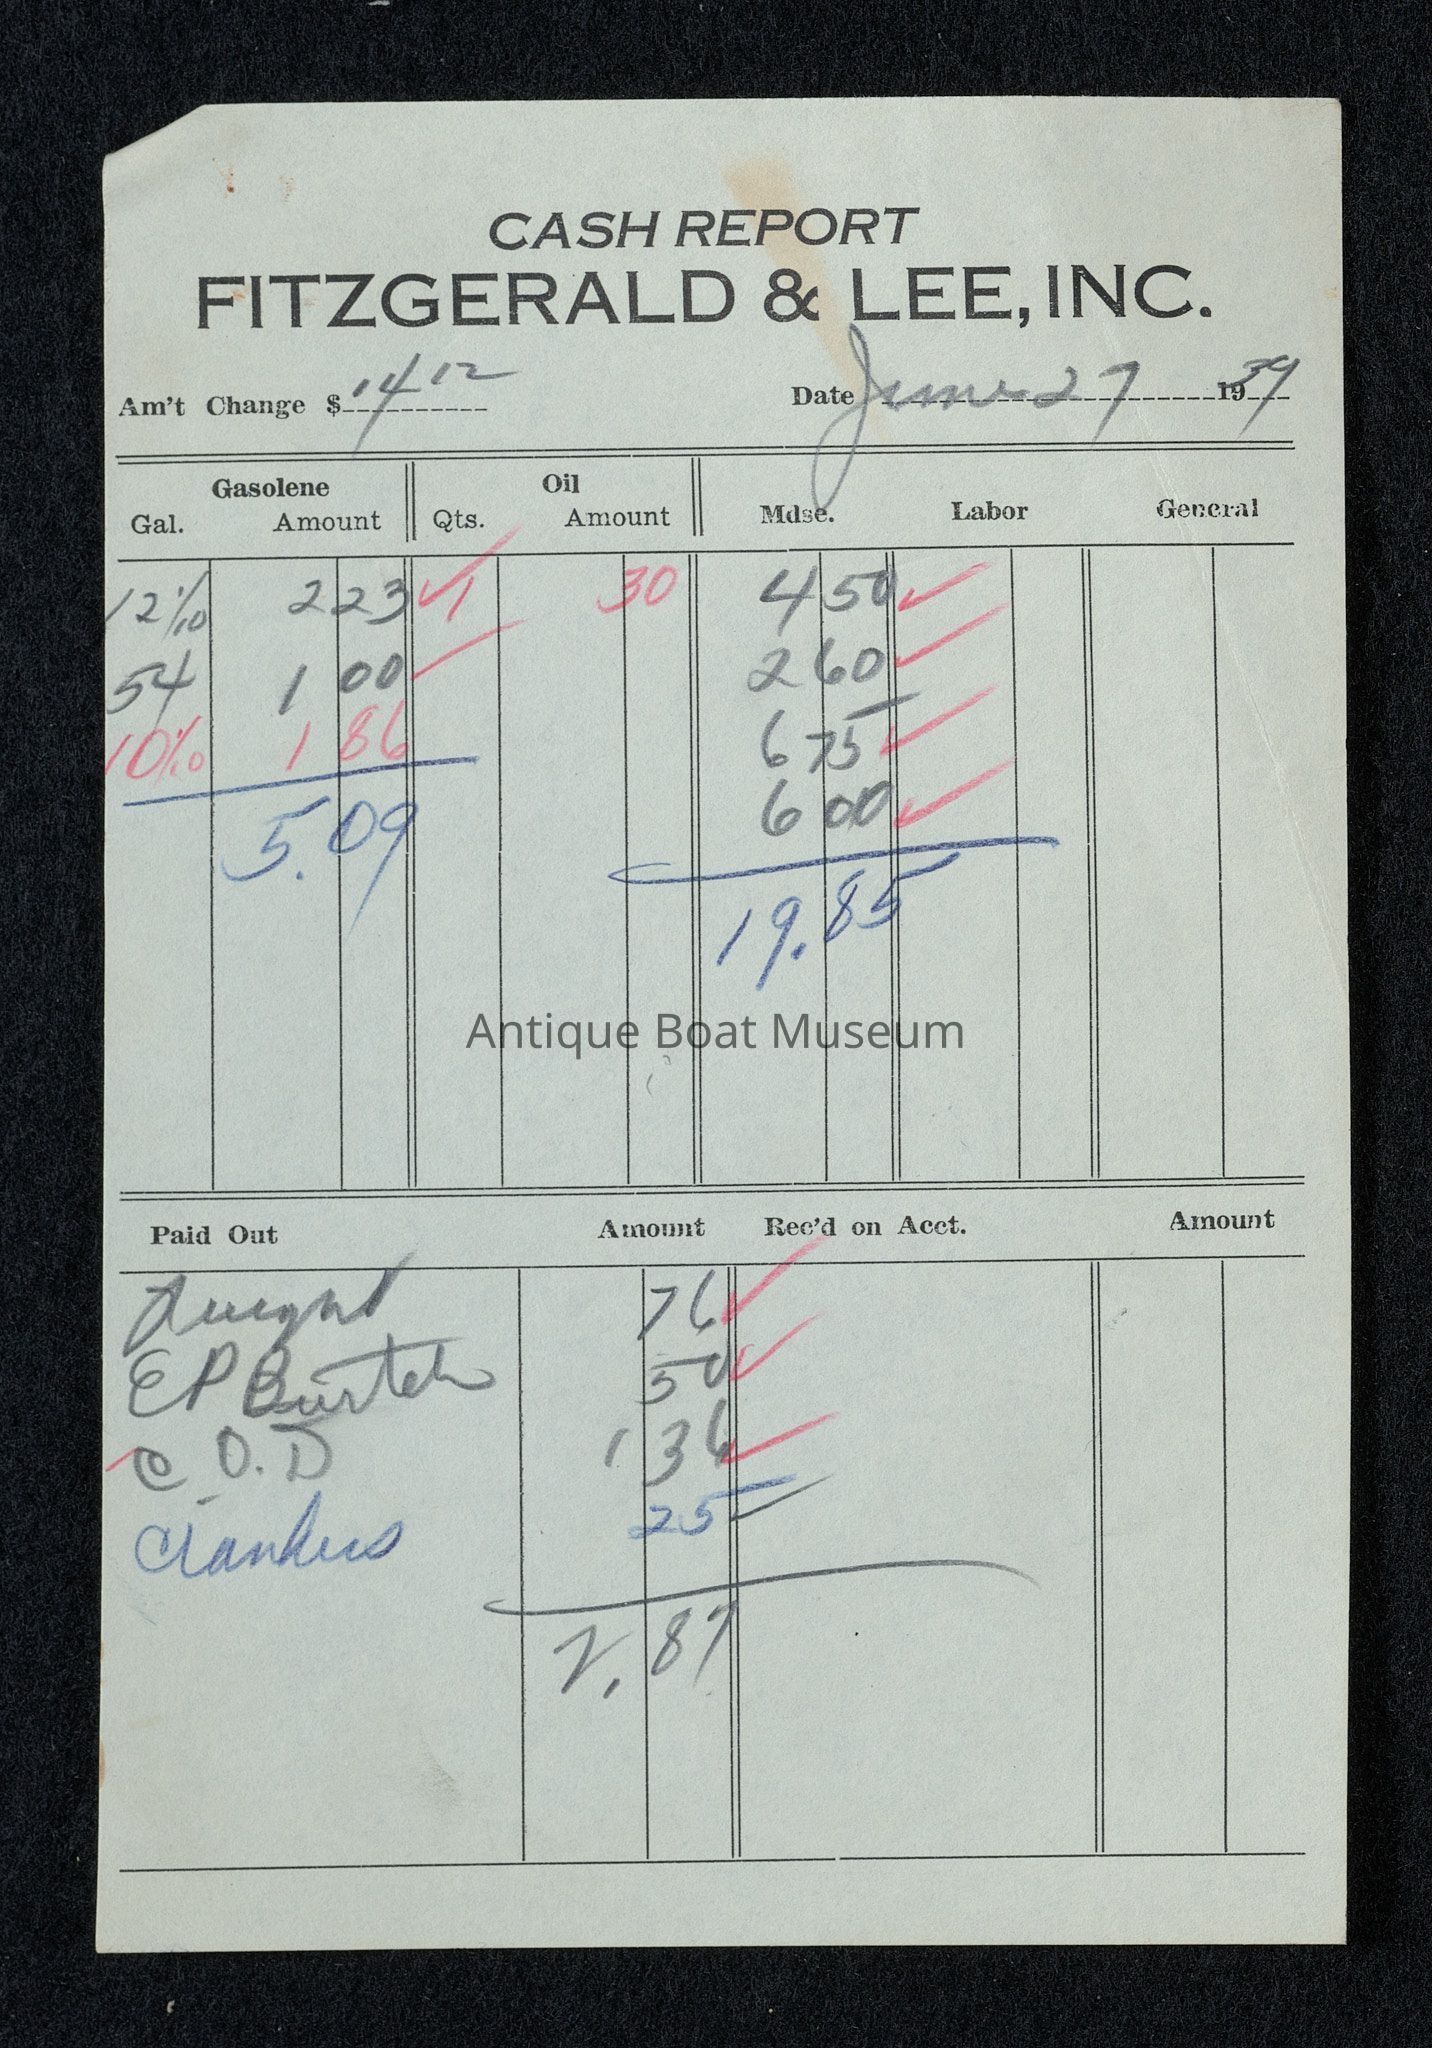 CASH REPORT
FITZGERALD & LEE, INC.
Am't Change $ 14 12 Date June 27 1939
Gasolene Oil
Gal. Amount Qts. Amount Mdse. Labor General
12 1/10 2 23 1 30 4 50
54 1 00 2 60
10 1/10 1 86 6 75
6 00
5.09
19.85
Antique Boat Museum
Paid Out Amount Rec'd on Acct. Amount
76
E P Burtch 50
C.O.D 1 36
25
2.87